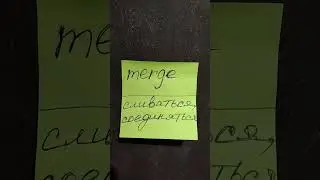 merge
сливаться,
соединяться